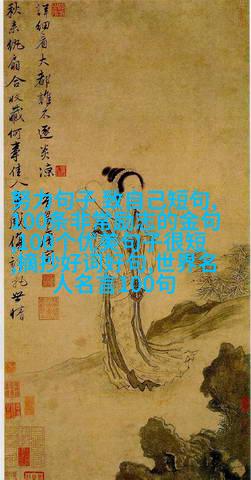 秋來紈扇合收藏何事佳人
世情
詳細看大都誰不逐炎凉
努力句子,致自己短句,
100条非常励志的金句
100个优美句子很短
,摘抄好词好句,世界名
人名言100句